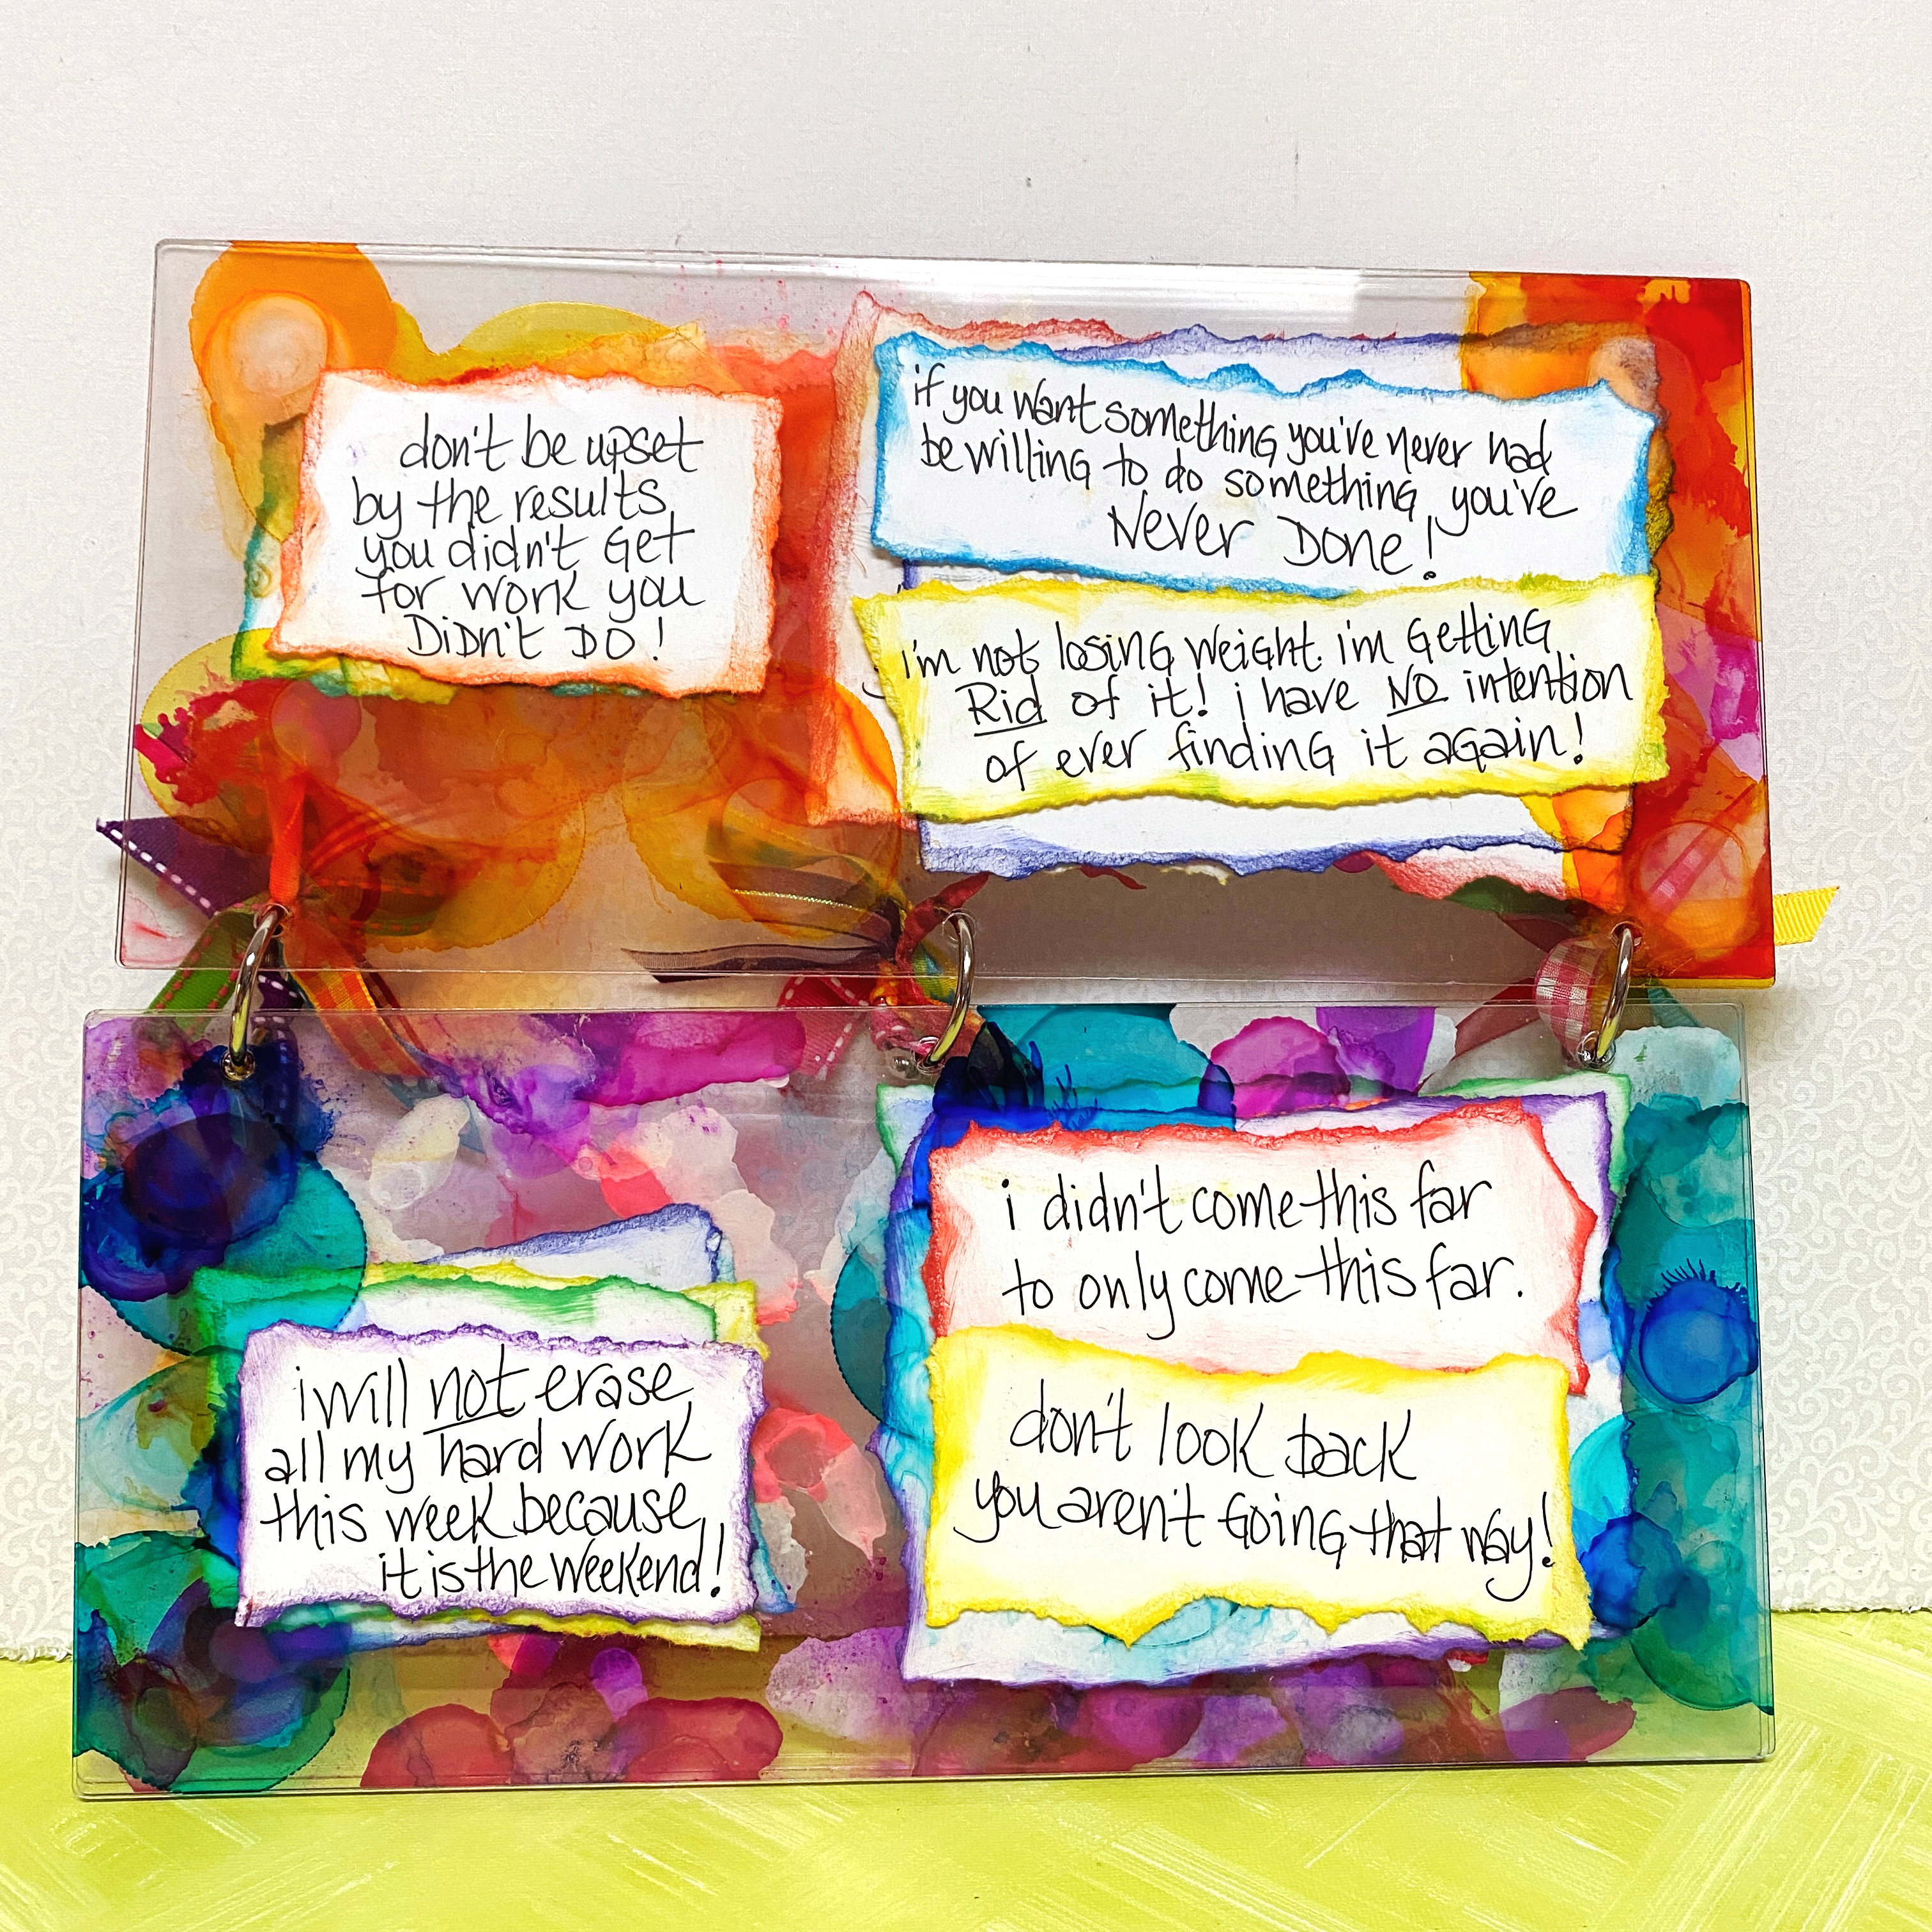 don't be upset
by the results
you didn't Get
for work you
DiDn't DO!
if you want somethinG you've never had
be willinG to do somethinG you've
Never Done!
i'm not losinG weiGht. i'm GettinG
Rid of it! i have NO intention
of ever findinG it aGain!
i will not erase
all my hard work
this week because
it is the weekend!
i didn't come this far
to only come this far.
don't look back
you aren't GoinG that way!